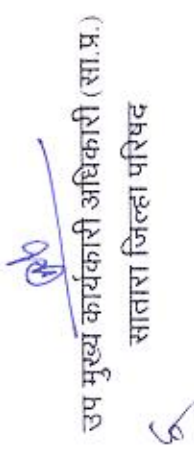 उप मुख्य कार्यकारी अधिकारी (सा.प्र.)
सातारा जिल्हा परिषद